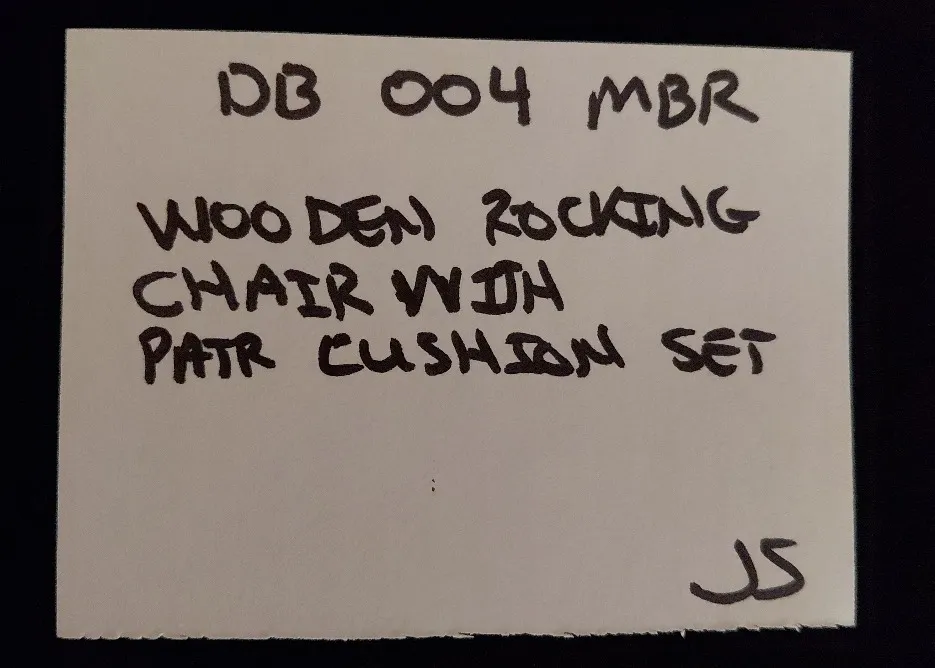 DB 004 MBR
WOODEN ROCKING
CHAIR WITH
PAIR CUSHION SET
JS